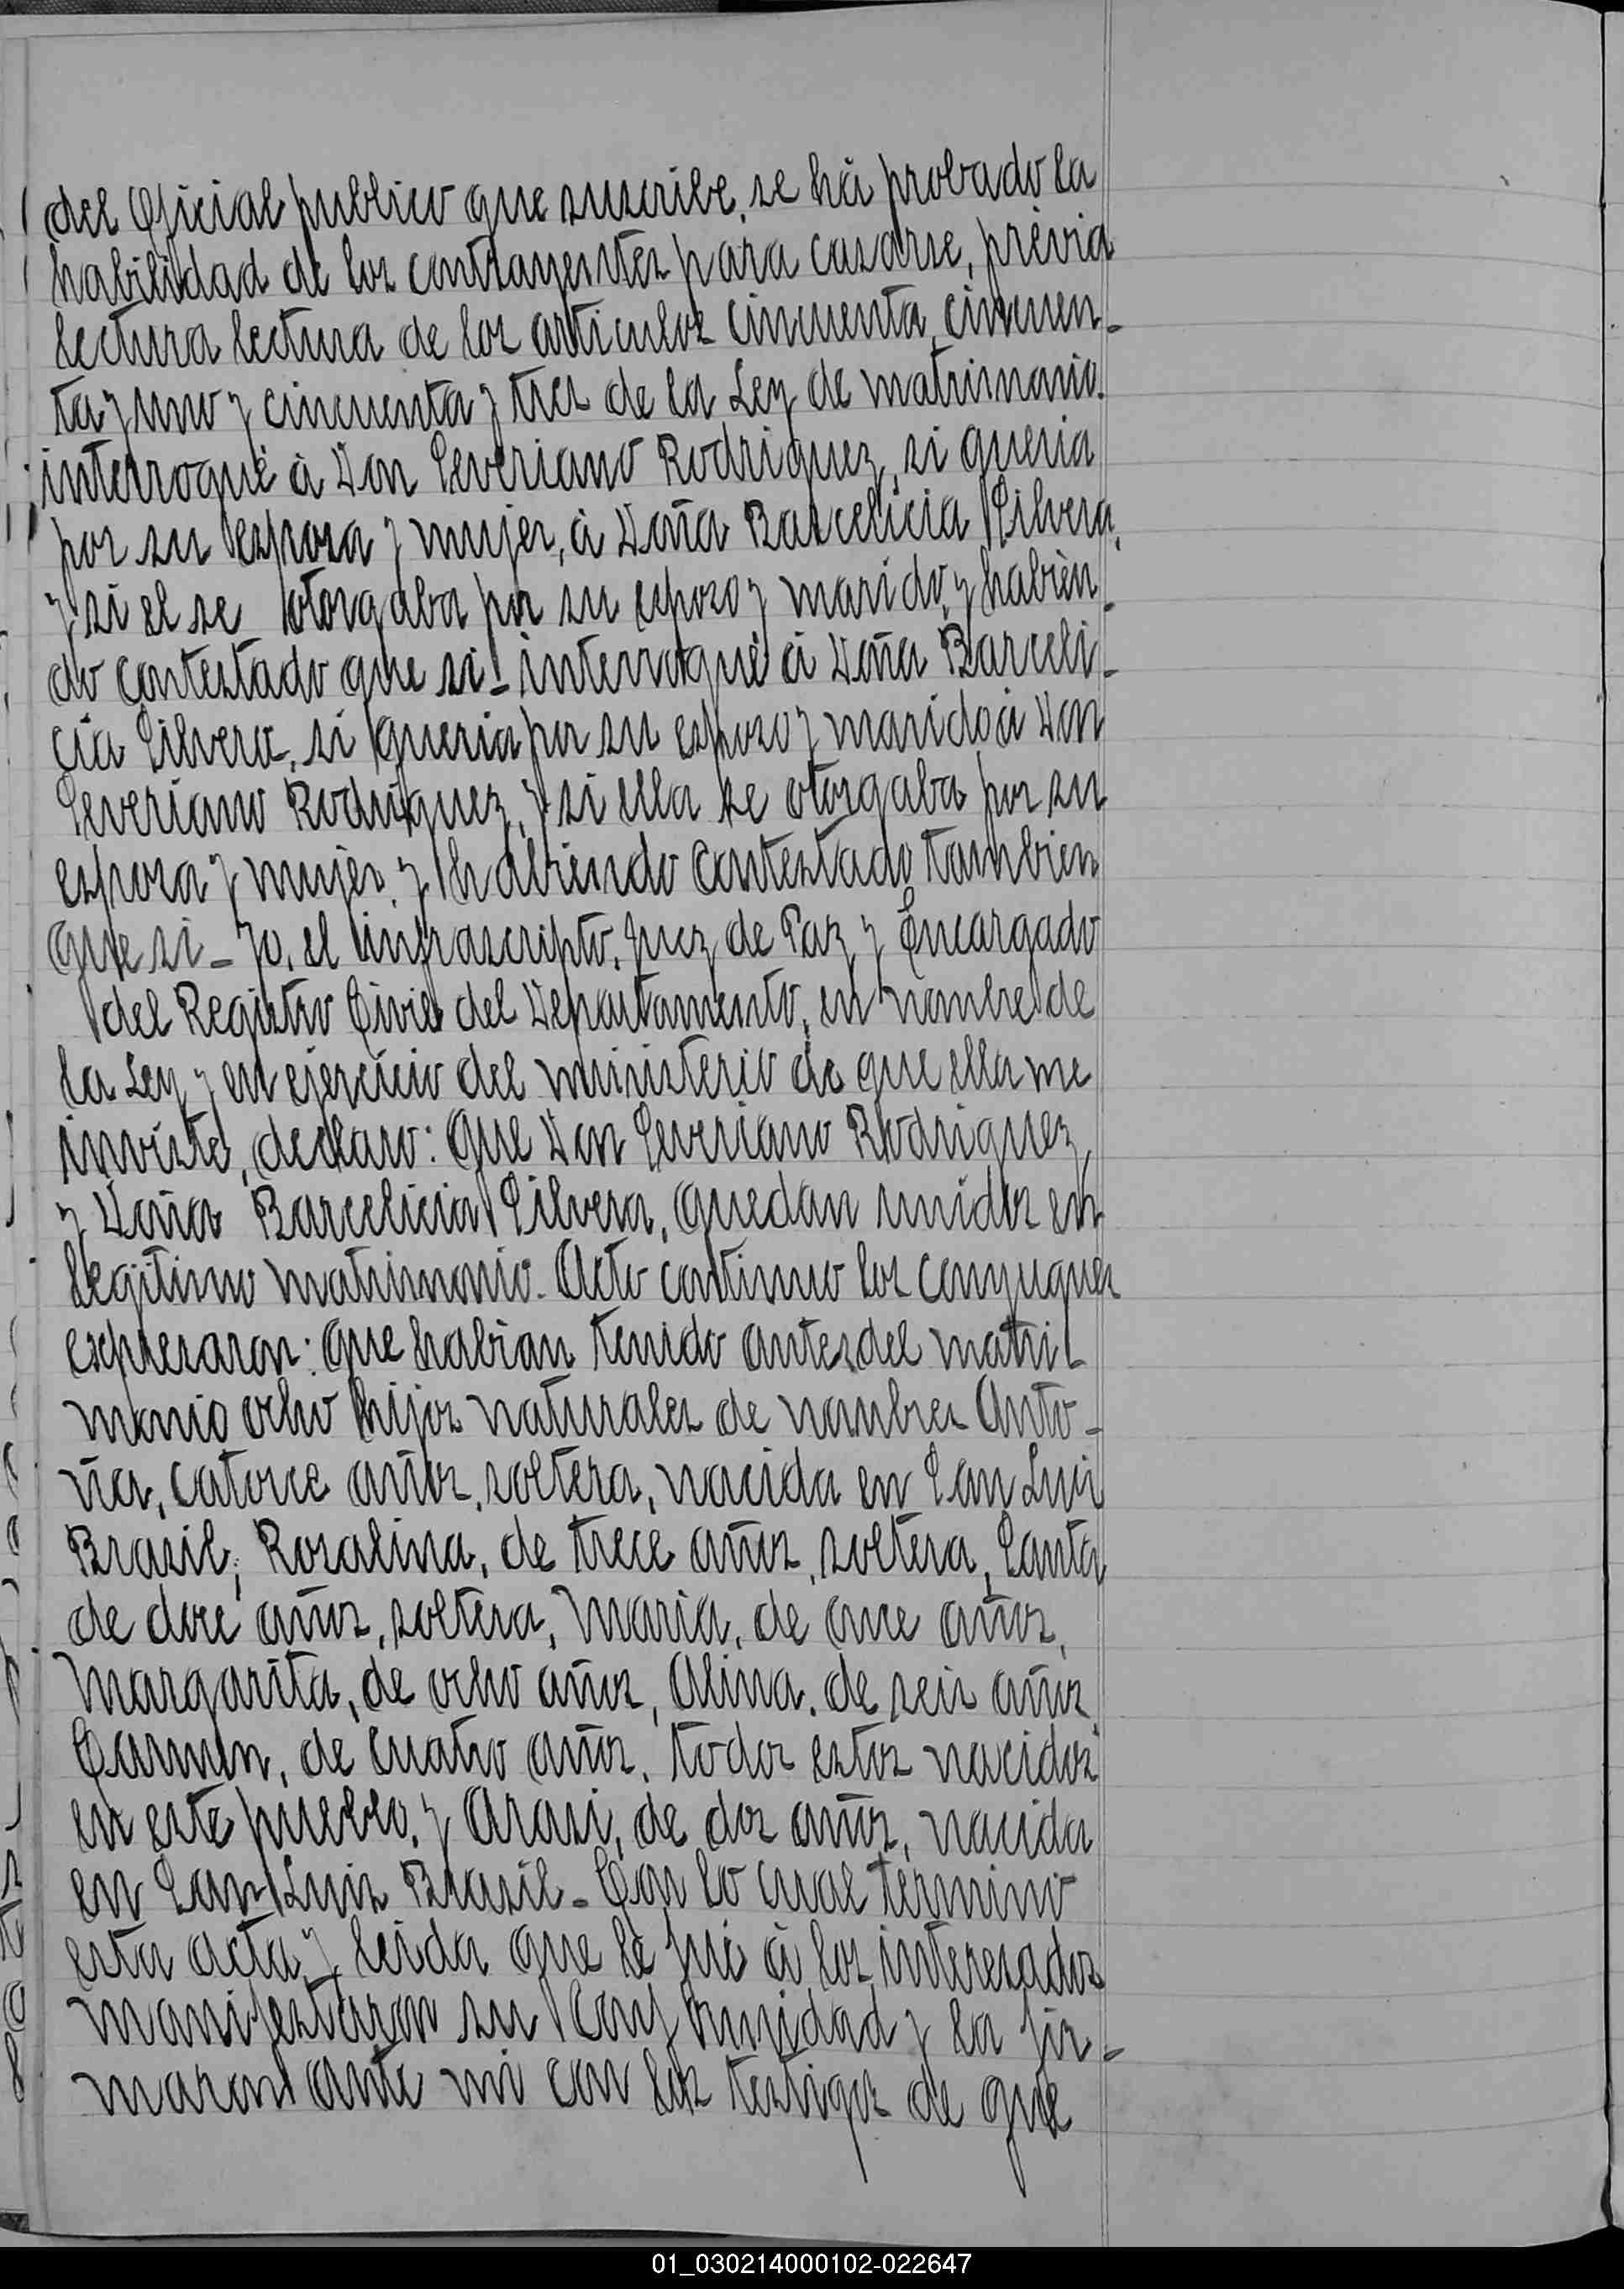 del Oficial publico que suscribe, se há probado la
habilidad de los contrayentes para casarse, prévia
lectura lectura de los articulos cincuenta, cincuen-
ta y uno y cincuenta y tres de la Ley de matrimonio.
interrogué á Don Severiano Rodriguez, si queria
por su esposa y mujer, á Doña Barcelicia Silvera,
y si el se otorgaba por su esposo y marido, y habién-
do contestado que si - interrogué á Doña Barceli-
cia Silvera, si queria por su esposo y marido á Don
Severiano Rodriguez, y si ella se otorgaba por su
esposa y mujer, y habiendo contestado tambien
que si - yo, el infrascripto, Juez de Paz y Encargado
del Registro Civil del Departamento, en nombre de
la Ley y en ejercicio del ministerio de que ella me
inviste, declaro: que Don Severiano Rodriguez
y Doña Barcelicia Silvera, quedan unidos en
legitimo matrimonio. Acto continuo los conyugues
expresaron: que habian tenido antes del matri-
monio ocho hijos naturales de nombres Anto-
nia, catorce años, soltera, nacida en San Luis
Brasil; Rosalina, de trece años, soltera, Santa
de doce años, soltera, Maria, de once años,
Margarita, de ocho años, Alina, de seis años
Carmen, de cuatro años, todos estos nacidos
en este pueblo, y Arasi, de dos años, nacida
en San Luis Brasil - Con lo cual terminó
esta acta y leida que le fué á los interesados
manifestaron su conformidad y la fir-
maron ante mi con los testigos de que
01_030214000102-022647